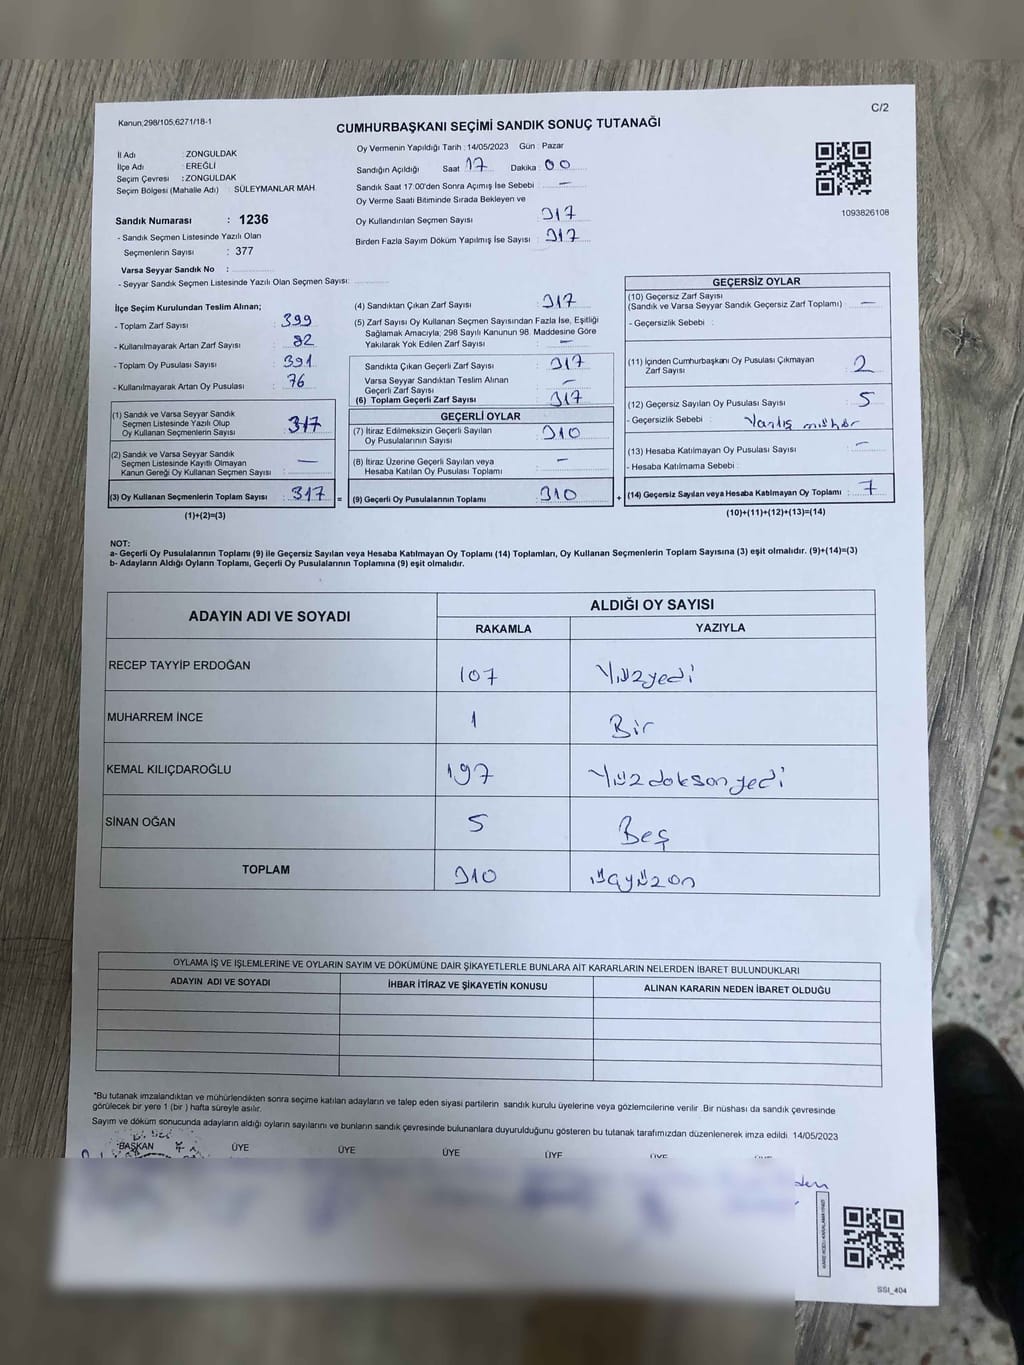 C/2
Kanun;298/105,6271/18-1
CUMHURBAŞKANI SEÇİMİ SANDIK SONUÇ TUTANAĞI
İl Adı : ZONGULDAK
İlçe Adı : EREĞLİ
Seçim Çevresi : ZONGULDAK
Seçim Bölgesi (Mahalle Adı) : SÜLEYMANLAR MAH.
Sandık Numarası : 1236
- Sandık Seçmen Listesinde Yazılı Olan
Seçmenlerin Sayısı : 377
Varsa Seyyar Sandık No :
- Seyyar Sandık Seçmen Listesinde Yazılı Olan Seçmen Sayısı:
Oy Vermenin Yapıldığı Tarih : 14/05/2023 Gün : Pazar
Sandığın Açıldığı Saat 17 Dakika : 00
Sandık Saat 17.00'den Sonra Açılmış İse Sebebi : —
Oy Verme Saati Bitiminde Sırada Bekleyen ve
Oy Kullandırılan Seçmen Sayısı : 317
Birden Fazla Sayım Döküm Yapılmış İse Sayısı : 317
1093826108
İlçe Seçim Kurulundan Teslim Alınan;
- Toplam Zarf Sayısı : 399
- Kullanılmayarak Artan Zarf Sayısı : 82
- Toplam Oy Pusulası Sayısı : 391
- Kullanılmayarak Artan Oy Pusulası : 76
(1) Sandık ve Varsa Seyyar Sandık
Seçmen Listesinde Yazılı Olup
Oy Kullanan Seçmenlerin Sayısı : 317
(2) Sandık ve Varsa Seyyar Sandık
Seçmen Listesinde Kayıtlı Olmayan
Kanun Gereği Oy Kullanan Seçmen Sayısı : —
(3) Oy Kullanan Seçmenlerin Toplam Sayısı : 317 =
(1)+(2)=(3)
(4) Sandıktan Çıkan Zarf Sayısı : 317
(5) Zarf Sayısı Oy Kullanan Seçmen Sayısından Fazla İse, Eşitliği
Sağlamak Amacıyla, 298 Sayılı Kanunun 98. Maddesine Göre
Yakılarak Yok Edilen Zarf Sayısı : —
Sandıkta Çıkan Geçerli Zarf Sayısı : 317
Varsa Seyyar Sandıktan Teslim Alınan
Geçerli Zarf Sayısı : —
(6) Toplam Geçerli Zarf Sayısı : 317
GEÇERLİ OYLAR
(7) İtiraz Edilmeksizin Geçerli Sayılan
Oy Pusulalarının Sayısı : 310
(8) İtiraz Üzerine Geçerli Sayılan veya
Hesaba Katılan Oy Pusulası Toplamı : —
(9) Geçerli Oy Pusulalarının Toplamı : 310 +
GEÇERSİZ OYLAR
(10) Geçersiz Zarf Sayısı
(Sandık ve Varsa Seyyar Sandık Geçersiz Zarf Toplamı) : —
- Geçersizlik Sebebi :
(11) İçinden Cumhurbaşkanı Oy Pusulası Çıkmayan
Zarf Sayısı : 2
(12) Geçersiz Sayılan Oy Pusulası Sayısı : 5
- Geçersizlik Sebebi : Yanlış mühür
(13) Hesaba Katılmayan Oy Pusulası Sayısı : —
- Hesaba Katılmama Sebebi :
(14) Geçersiz Sayılan veya Hesaba Katılmayan Oy Toplamı : 7
(10)+(11)+(12)+(13)=(14)
NOT:
a- Geçerli Oy Pusulalarının Toplamı (9) ile Geçersiz Sayılan veya Hesaba Katılmayan Oy Toplamı (14) Toplamları, Oy Kullanan Seçmenlerin Toplam Sayısına (3) eşit olmalıdır. (9)+(14)=(3)
b- Adayların Aldığı Oyların Toplamı, Geçerli Oy Pusulalarının Toplamına (9) eşit olmalıdır.
ADAYIN ADI VE SOYADI
ALDIĞI OY SAYISI
RAKAMLA YAZIYLA
RECEP TAYYİP ERDOĞAN 107 Yüzyedi
MUHARREM İNCE 1 Bir
KEMAL KILIÇDAROĞLU 197 Yüzdoksanyedi
SİNAN OĞAN 5 Beş
TOPLAM 310 üçyüzon
OYLAMA İŞ VE İŞLEMLERİNE VE OYLARIN SAYIM VE DÖKÜMÜNE DAİR ŞİKAYETLERLE BUNLARA AİT KARARLARIN NELERDEN İBARET BULUNDUKLARI
ADAYIN ADI VE SOYADI İHBAR İTİRAZ VE ŞİKAYETİN KONUSU ALINAN KARARIN NEDEN İBARET OLDUĞU
*Bu tutanak imzalandıktan ve mühürlendikten sonra seçime katılan adayların ve talep eden siyasi partilerin sandık kurulu üyelerine veya gözlemcilerine verilir. Bir nüshası da sandık çevresinde
görülecek bir yere 1 (bir ) hafta süreyle asılır.
Sayım ve döküm sonucunda adayların aldığı oyların sayılarını ve bunların sandık çevresinde bulunanlara duyurulduğunu gösteren bu tutanak tarafımızdan düzenlenerek imza edildi. 14/05/2023
BAŞKAN ÜYE ÜYE ÜYE ÜYE ÜYE
SSI_404